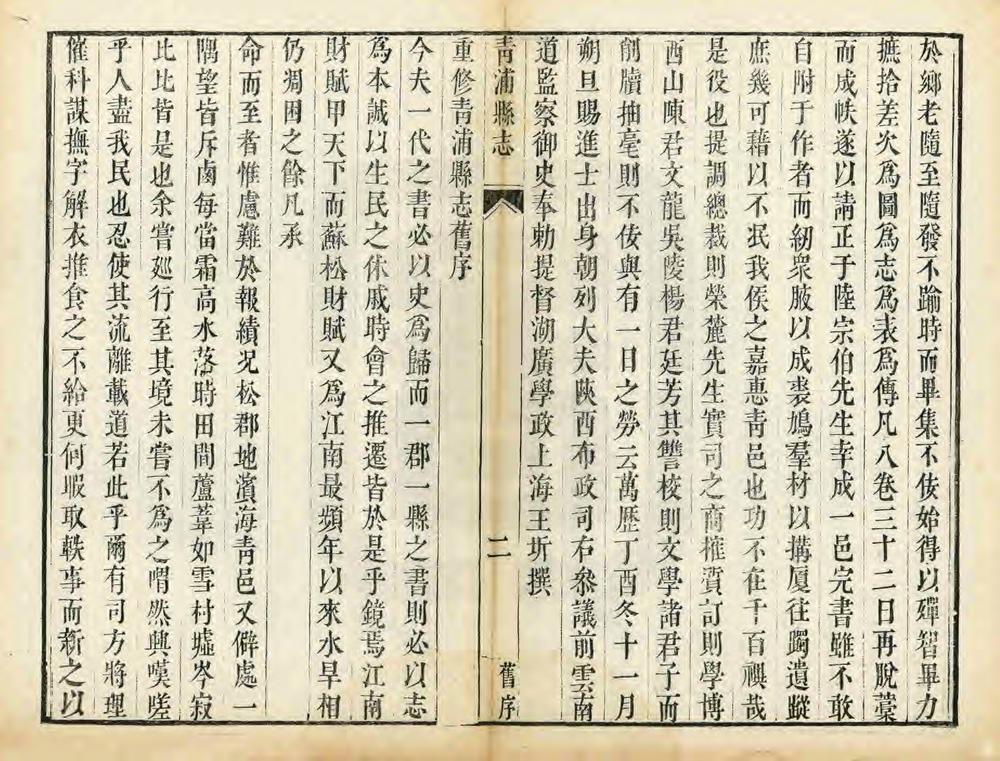 於鄉老隨至隨發不踰時而畢集不佞始得以殫智畢力
摭拾差次爲圖爲志爲表爲傳凡八卷三十二日再脫藁
而成帙遂以請正于陸宗伯先生幸成一邑完書雖不敢
自附于作者而紉衆腋以成裘鳩羣材以搆厦往躅遺蹤
庶幾可藉以不泯我侯之嘉惠靑邑也功不在千百禩哉
是役也提調總裁則榮麓先生實司之商榷瀆訂則學博
西山陳君文龍吳陵楊君廷芳其讐校則文學諸君子而
削牘抽毫則不佞與有一日之勞云萬歷丁酉冬十一月
朔旦賜進士出身朝列大夫陝西布政司右叅議前雲南
道監察御史奉勅提督湖廣學政上海王圻撰
靑浦縣志
二
舊序
重修靑浦縣志舊序
今夫一代之書必以史爲歸而一郡一縣之書則必以志
爲本誠以生民之休戚時會之推遷皆於是乎鏡焉江南
財賦甲天下而蘇松財賦又爲江南最頻年以來水旱相
仍凋困之餘凡承
命而至者惟慮難於報績况松郡地濵海靑邑又僻處一
隅望皆斥鹵每當霜高水落時田間蘆葦如雪村墟岑寂
比比皆是也余嘗廵行至其境未嘗不爲之喟然興嘆嗟
乎人盡我民也忍使其流離載道若此乎爾有司方將理
催科謀撫字解衣推食之不給更何暇取軼事而新之以